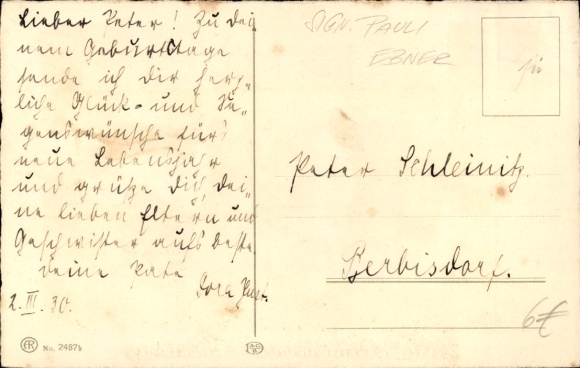 Lieber Peter! Zu dei
nem Geburtstage
sende ich dir herz„
liche Glück- und Se„
genswünsche für's
neue Lebensjahr
und grüße dich, dei„
ne lieben Eltern und
Geschwister aufs beste
deine Pate
Dora
2. III. 30.
SIGN. PAULI
EBNER
für
Peter Schleinitz.
Berbisdorf.
6€
No. 2487b